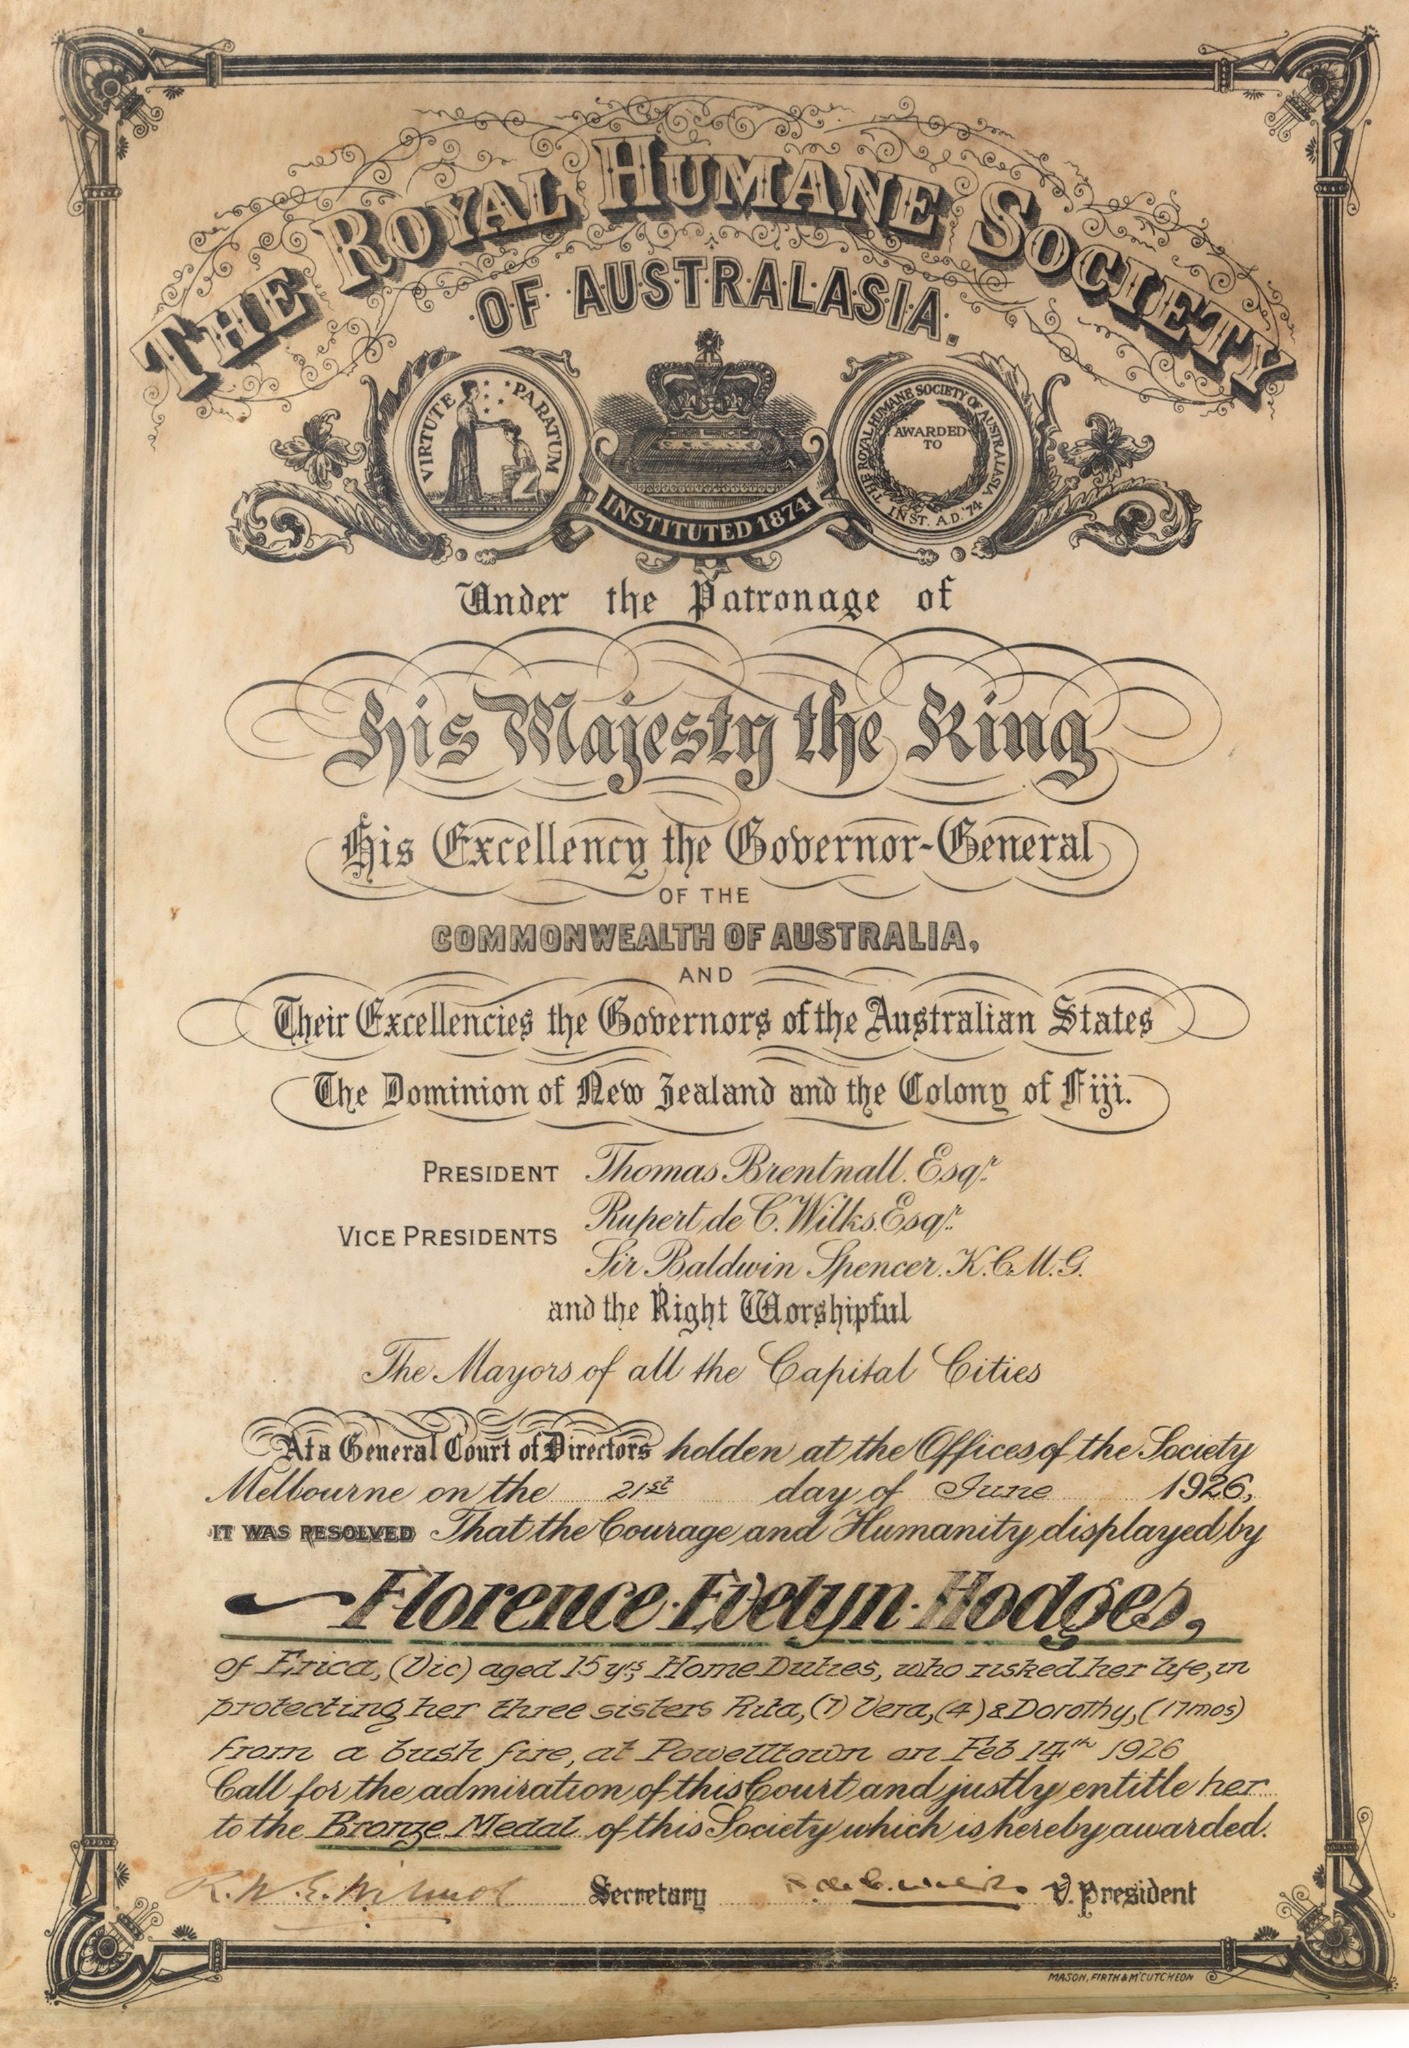 THE ROYAL HUMANE SOCIETY
OF AUSTRALASIA.
VIRTUTE PARATUM
INSTITUTED 1874
THE ROYAL HUMANE SOCIETY OF AUSTRALASIA
AWARDED
TO
INST. A.D. '74
Under the Patronage of
His Majesty the King
His Excellency the Governor-General
OF THE
COMMONWEALTH OF AUSTRALIA,
AND
Their Excellencies the Governors of the Australian States
The Dominion of New Zealand and the Colony of Fiji.
PRESIDENT Thomas Brentnall. Esqr.
Rupert de C. Wilks. Esqr.
VICE PRESIDENTS
Sir Baldwin Spencer. K.C.M.G.
and the Right Worshipful
The Mayors of all the Capital Cities
At a General Court of Directors holden at the Offices of the Society
Melbourne on the 21st day of June 1926,
IT WAS RESOLVED That the Courage and Humanity displayed by
Florence Evelyn Hodges,
of Erica, (Vic) aged 15 yrs, Home Duties, who risked her life, in
protecting her three sisters Rita, (7) Vera, (4) & Dorothy, (17 mos)
from a bush fire, at Powelltown on Feb 14th 1926
Call for the admiration of this Court and justly entitle her
to the Bronze Medal of this Society which is hereby awarded.
Secretary V. President
MASON, FIRTH & McCUTCHEON